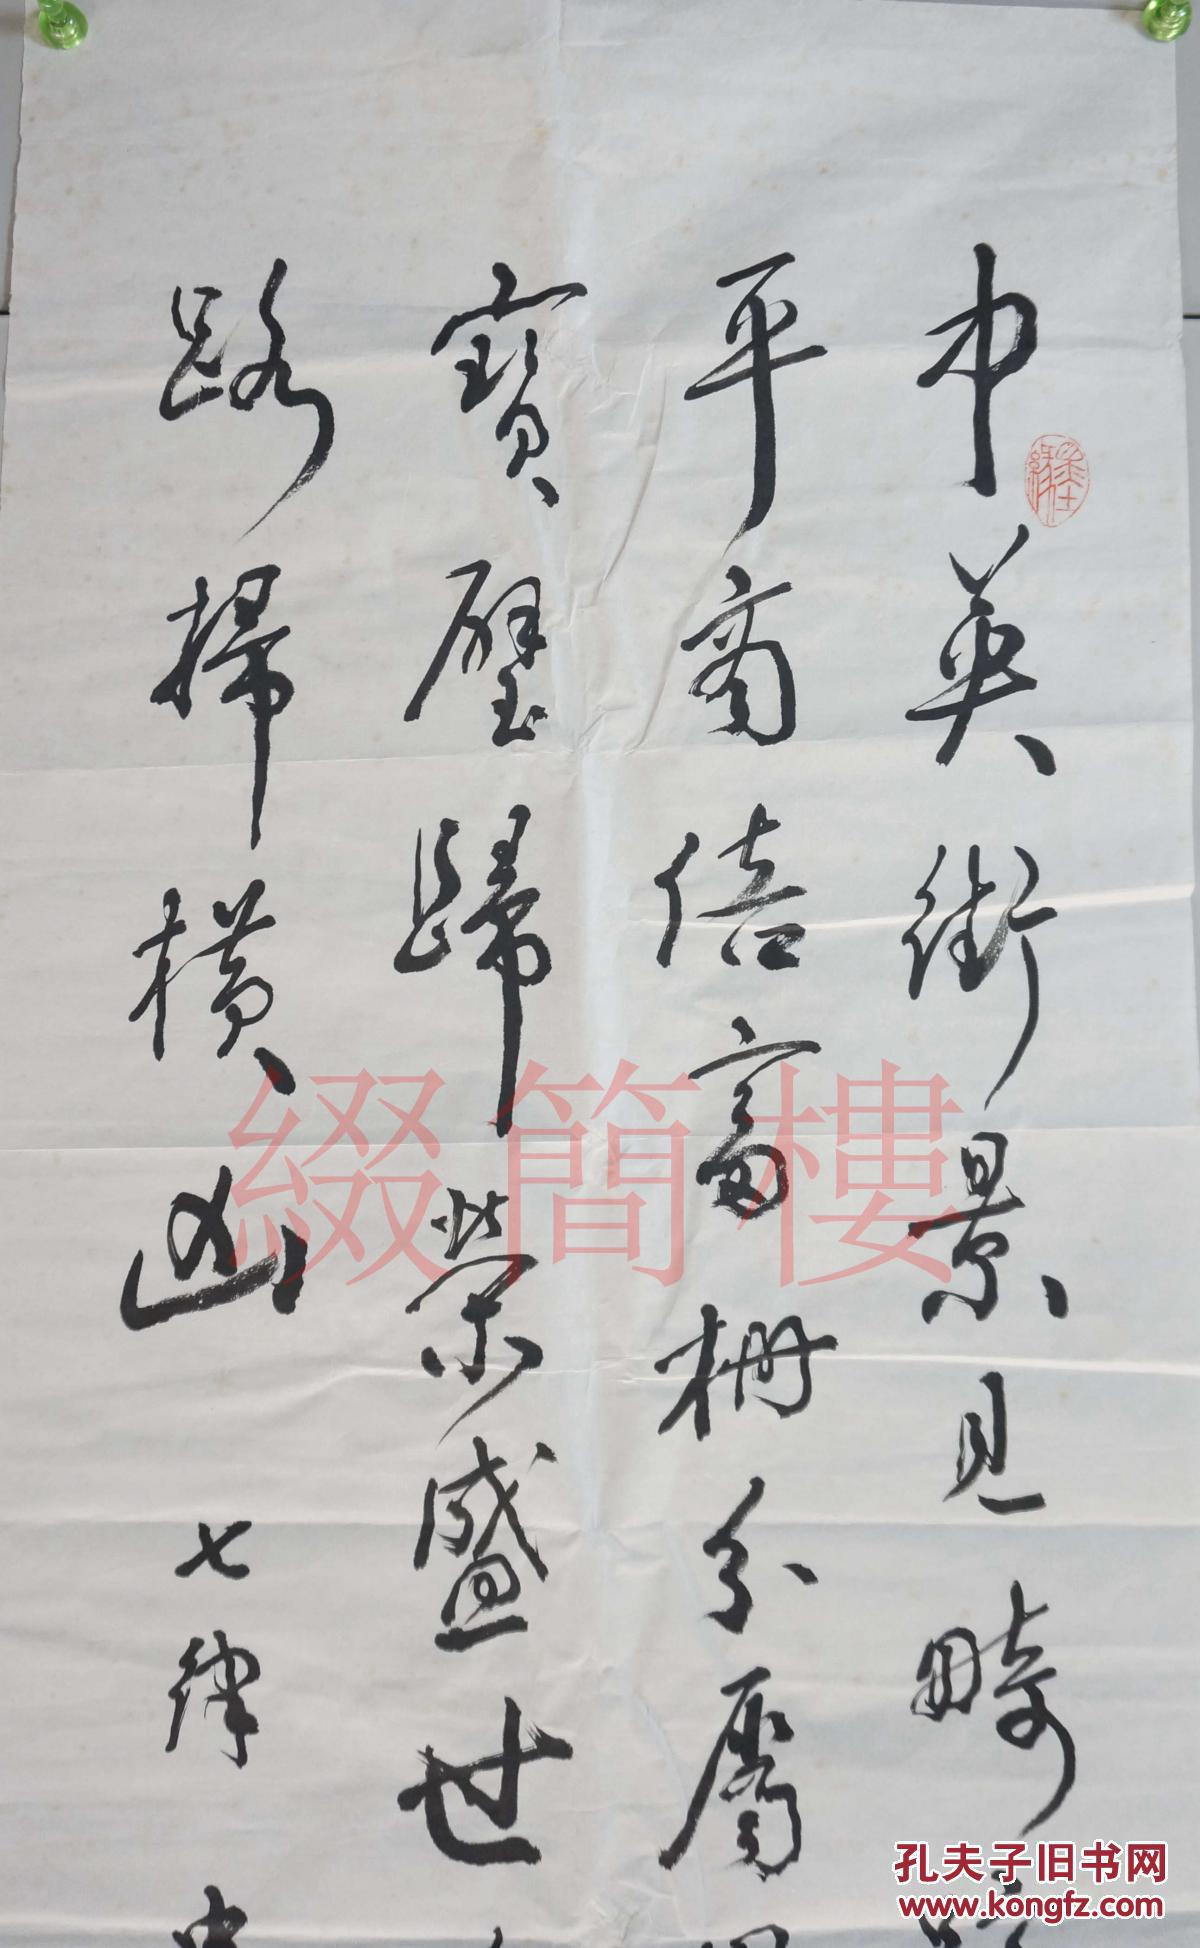 中英街景見畸
平商倍富柵分屬
寶璧歸榮盛世
路掃横幽
七律中
綴簡樓
孔夫子旧书网
www.kongfz.com